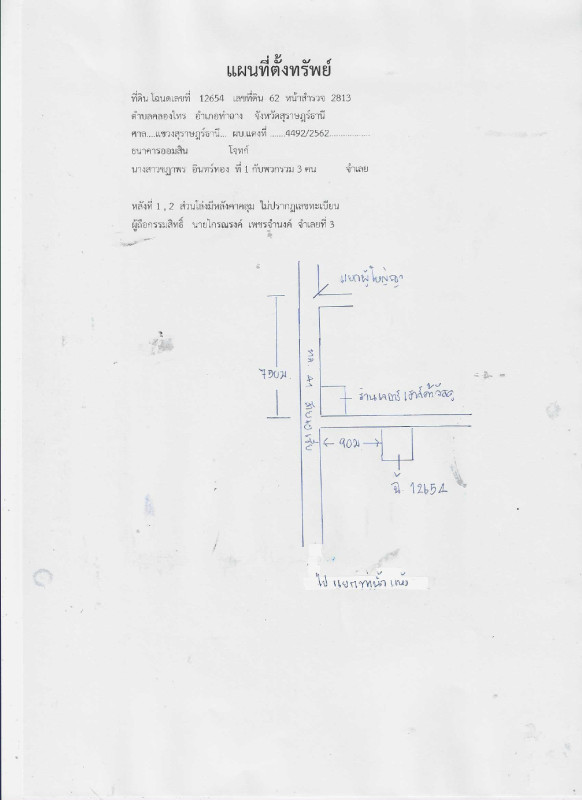 แผนที่ตั้งทรัพย์
ที่ดิน โฉนดเลขที่ 12654 เลขที่ดิน 62 หน้าสำรวจ 2813
ตำบลคลองไทร อำเภอท่าฉาง จังหวัดสุราษฎร์ธานี
ศาล....แขวงสุราษฎร์ธานี... ผบ.แดงที่ ......4492/2562..................
ธนาคารออมสิน โจทก์
อินทร์ทอง ที่ 1 กับพวกรวม 3 คน จำเลย
หลังที่ 1 , 2 ส่วนโล่งมีหลังคาคลุม ไม่ปรากฏเลขทะเบียน
ผู้ถือกรรมสิทธิ์ นายไกรณรงค์ เพชรจำนงค์ จำเลยที่ 3
750ม
ทล 41
90ม
ที่ 12654
ไป